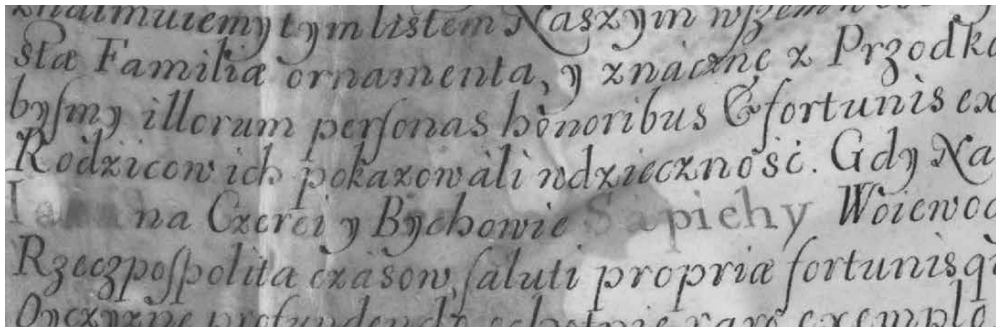 znaimuiemy tym listem Naszym wszem
stæ Familiæ ornamenta, y znácznę z Przodko
byſmy illorum perſonas honoribus & fortunis ex
Rodzicow ich pokazowáli wdzieczność. Gdy Na
na Czerei y Bychowie Sapiehy Woiewod
Rzeczpoſpolita czasow, ſaluti propriæ fortunisq
Oyczyznę profundendo ochotnie raro exemplo